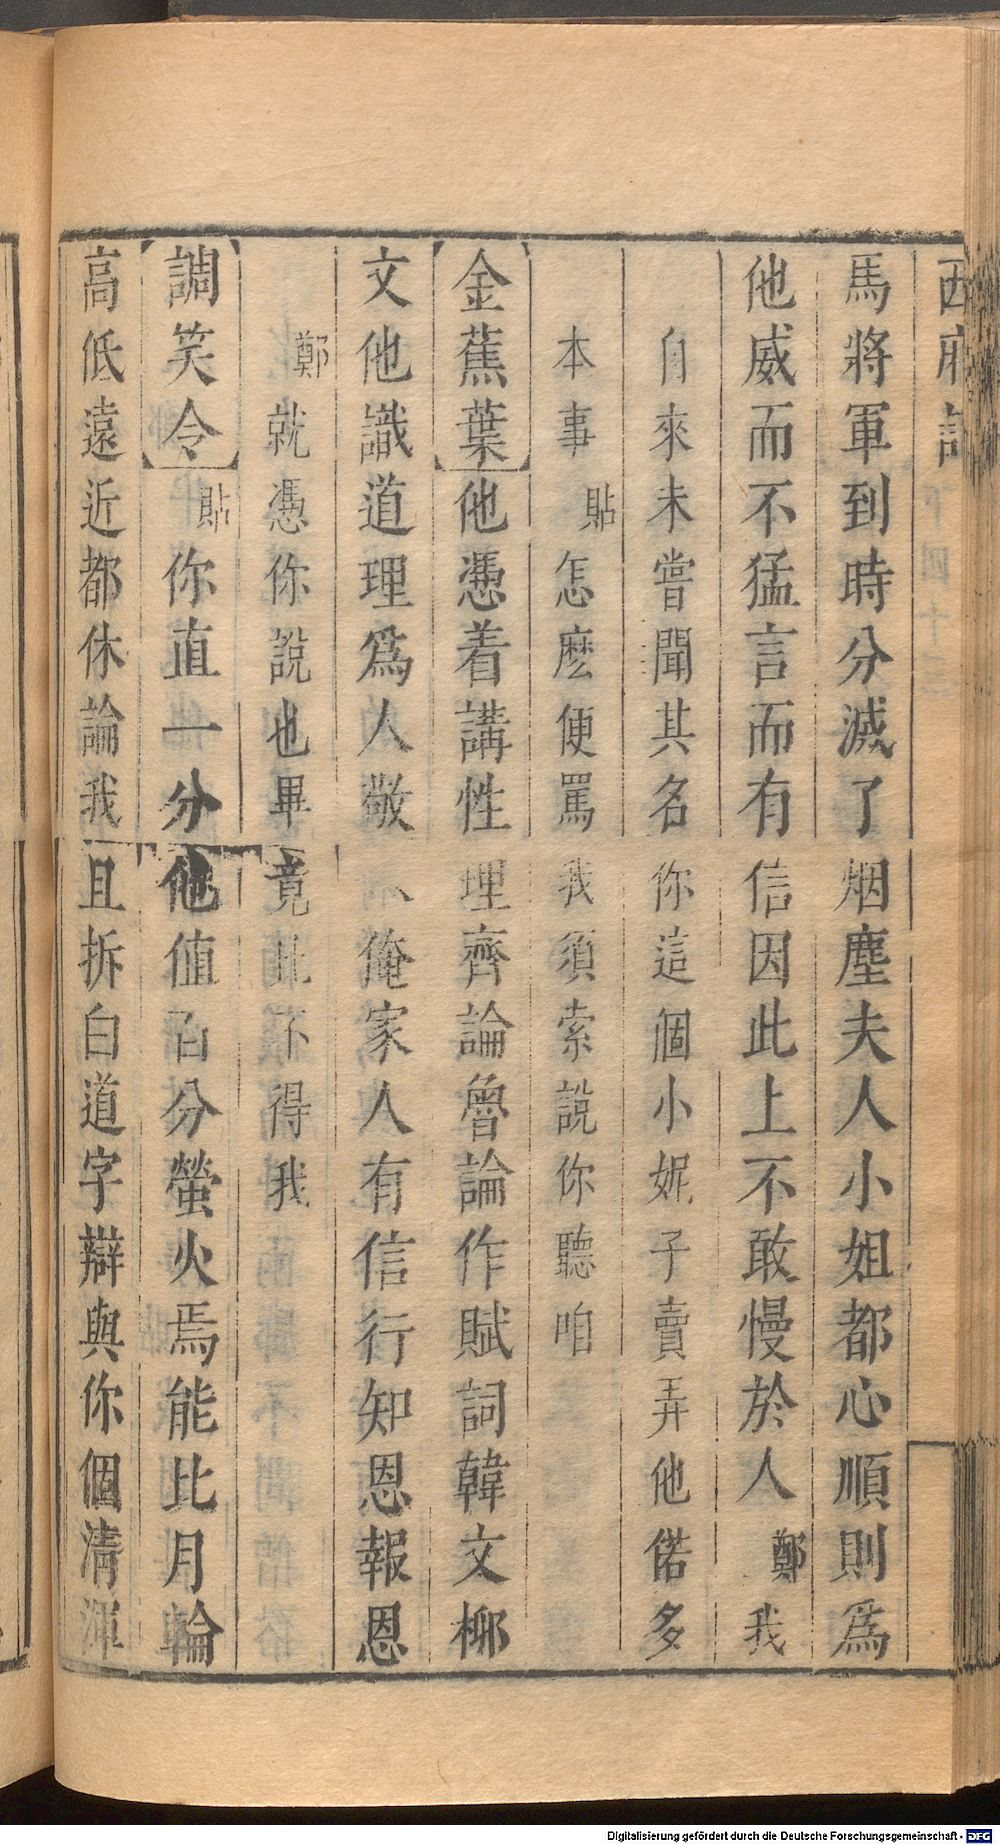 馬將軍到時分滅了烟塵夫人小姐都心順則爲
他威而不猛言而有信因此上不敢慢於人 鄭 我
自來未嘗聞其名你這個小妮子賣弄他偌多
本事 貼 怎麽便罵我須索說你聽咱
【金蕉葉】他憑着講性理齊論魯論作賦詞韓文柳
文他識道理爲人敬人俺家人有信行知恩報恩
鄭 就憑你說也畢竟比不得我
【調笑令】 貼 你直一分他値百分螢火焉能比月輪
高低遠近都休論我且拆白道字辯與你個清渾
Digitalisierung gefördert durch die Deutsche Forschungsgemeinschaft - DFG